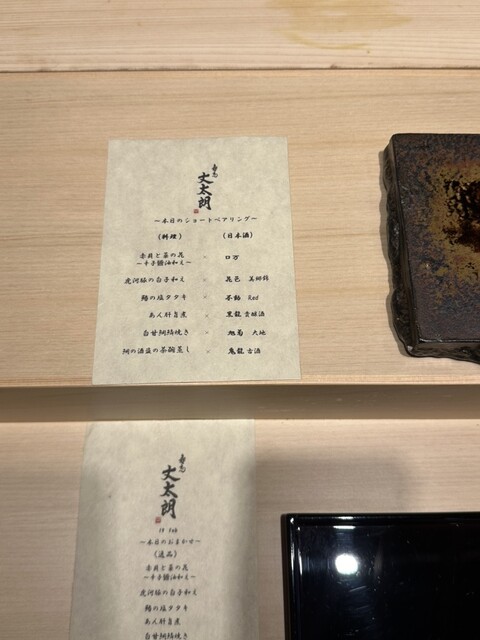 寿志
丈太朗
～本日のショートペアリング～
(料理) (日本酒)
赤貝と菜の花
～辛子醤油和え～ × ロ万
虎河豚の白子和え × 花邑 美郷錦
鰆の塩タタキ × 不動 Red
あん肝旨煮 × 黒龍 貴醸酒
白甘鯛鱗焼き × 旭菊 大地
鮑の酒盗の茶碗蒸し × 亀龍 古酒
丈太朗
～本日のおまかせ～
(逸品)
赤貝と菜の花
～辛子醤油和え～
虎河豚の白子和え
鰆の塩タタキ
あん肝旨煮
白甘鯛鱗焼き